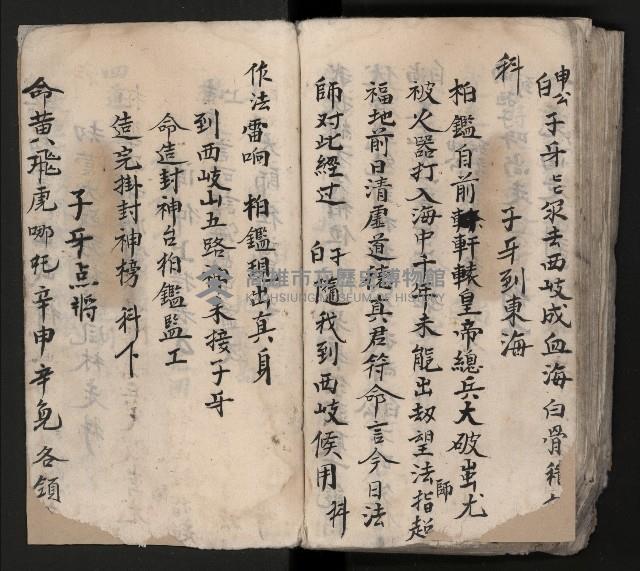 申公白 子牙 去西岐成血海白骨
科 子牙到東海
柏鑑自前 軒轅皇帝總兵大破蚩尤
被火器打入海中千年未能出劫望法師指超
福地前日清虛道德真君符命言今日法
師對此經过 子牙白 隨我到西岐候用 科
作法雷响 柏鑑現出真身
到西岐山五路 來接子牙
命造封神台柏鑑監工
造完掛封神榜 科下
子牙点將
命黃飛虎哪吒辛甲辛免各領
高雄市立歷史博物館
KAOHSIUNG MUSEUM OF HISTORY